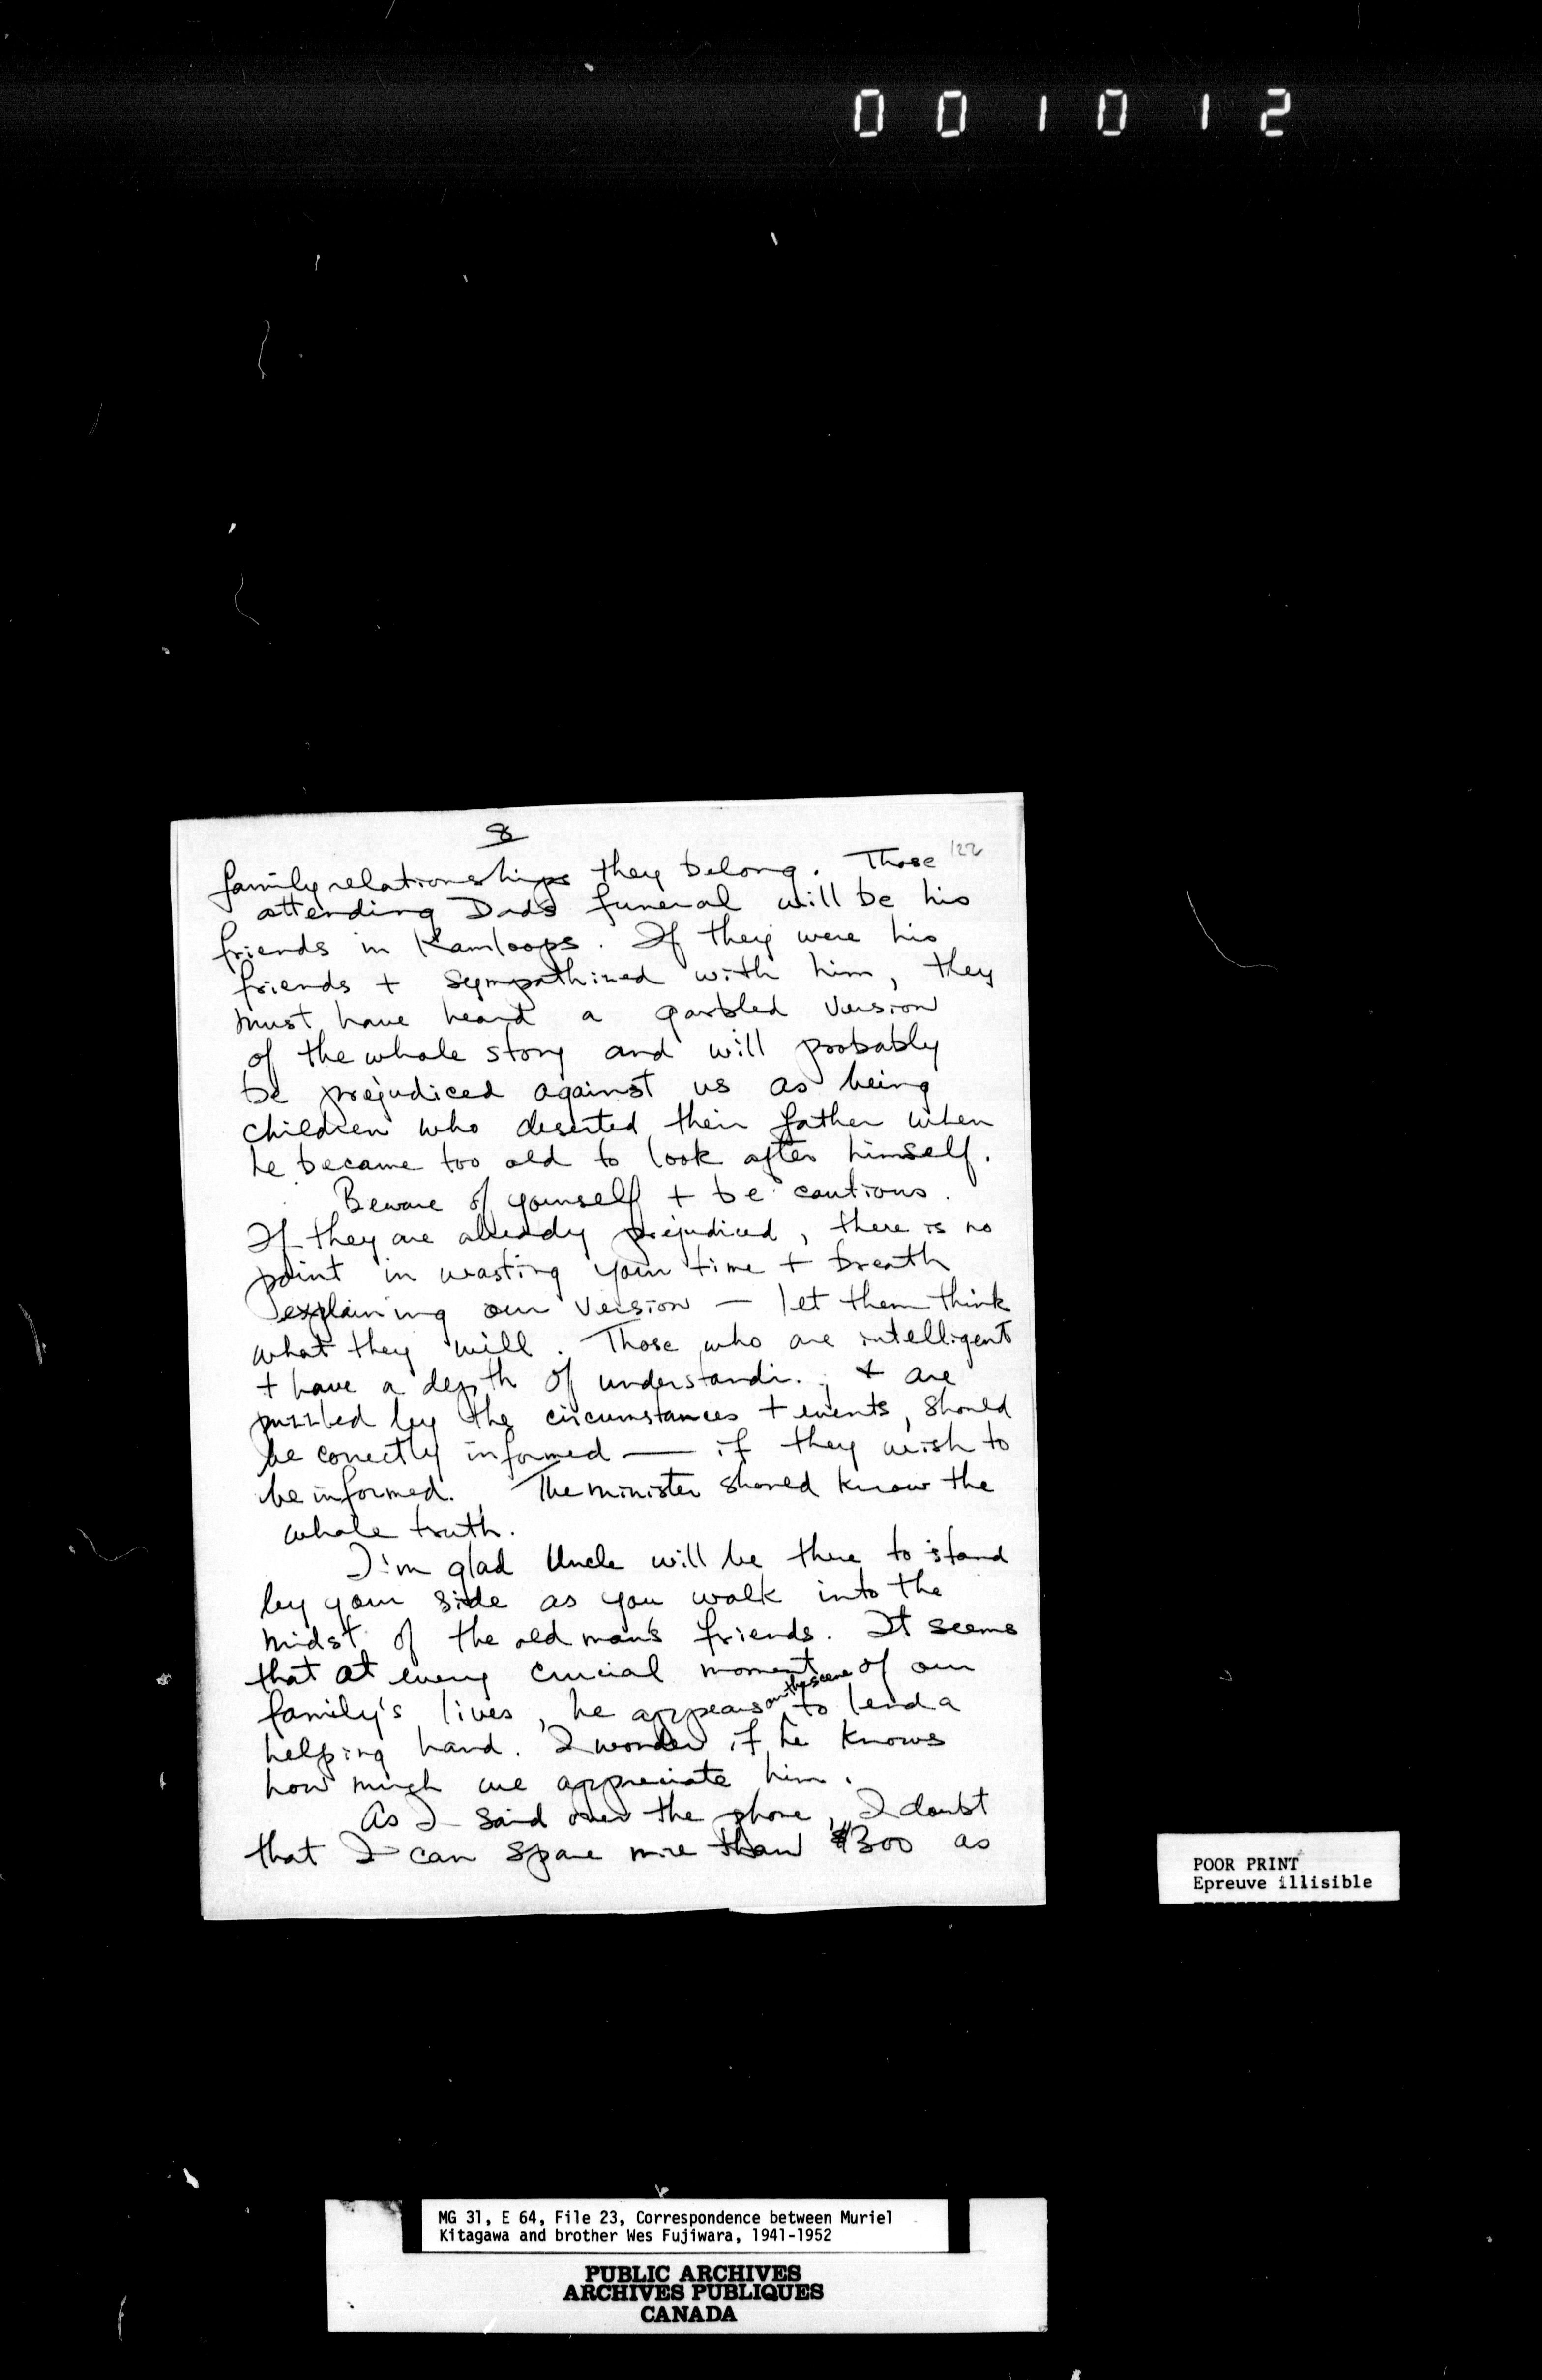 001012
8
122
family relationships they belong. Those
attending Dad's funeral will be his
friends in Kamloops. If they were his
friends + sympathized with him, they
must have heard a garbled version
of the whole story and will probably
be prejudiced against us as being
children who deserted their father when
he became too old to look after himself.
Beware of yourself + be cautious.
If they are already prejudiced, there is no
point in wasting your time + breath
explaining our version — let them think
what they will. Those who are intelligent
+ have a depth of understandi. , + are
puzzled by the circumstances + events, should
be correctly informed — if they wish to
be informed. The minister should know the
whole truth.
I'm glad Uncle will be there to stand
by your side as you walk into the
midst of the old man's friends. It seems
that at every crucial moment of our
family's lives, he appears on the scene to lend a
helping hand. I wonder if he knows
how much we appreciate him.
As I said over the phone, I doubt
that I can spare more than $300 as
POOR PRINT
Epreuve illisible
MG 31, E 64, File 23, Correspondence between Muriel
Kitagawa and brother Wes Fujiwara, 1941-1952
PUBLIC ARCHIVES
ARCHIVES PUBLIQUES
CANADA